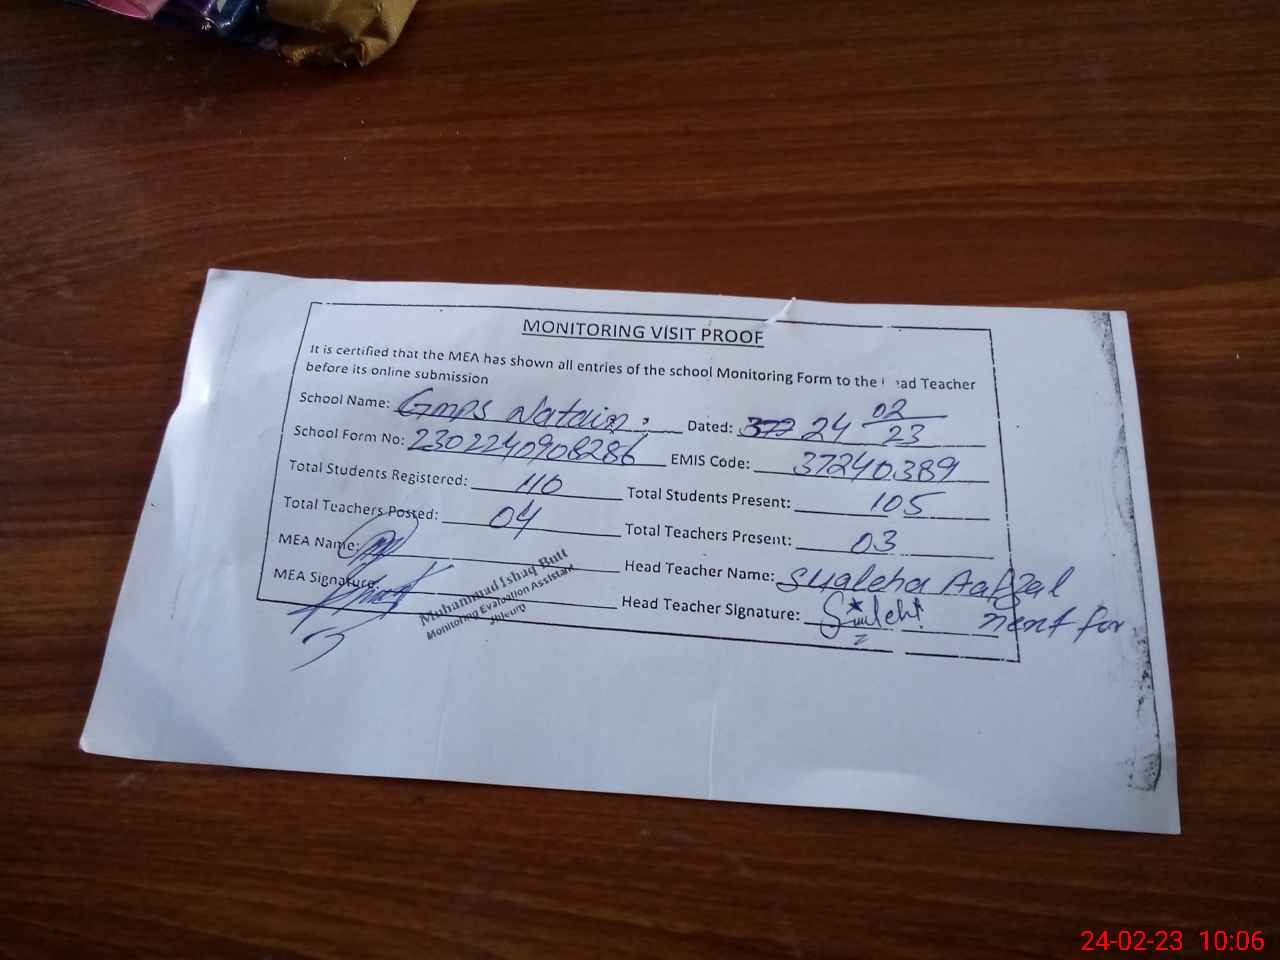 MONITORING VISIT PROOF
It is certified that the MEA has shown all entries of the school Monitoring Form to the Head Teacher
before its online submission
School Name: Gmps Natain. Dated: 24 02/23
School Form No: 2302240908286 EMIS Code: 37240389
Total Students Registered: 110 Total Students Present: 105
Total Teachers Posted: 04 Total Teachers Present: 03
MEA Name: Head Teacher Name: Sualeha Aafzal
MEA Signature: Head Teacher Signature:
Muhammad Ishaq Butt
Monitoring Evaluation Assistant
24-02-23 10:06